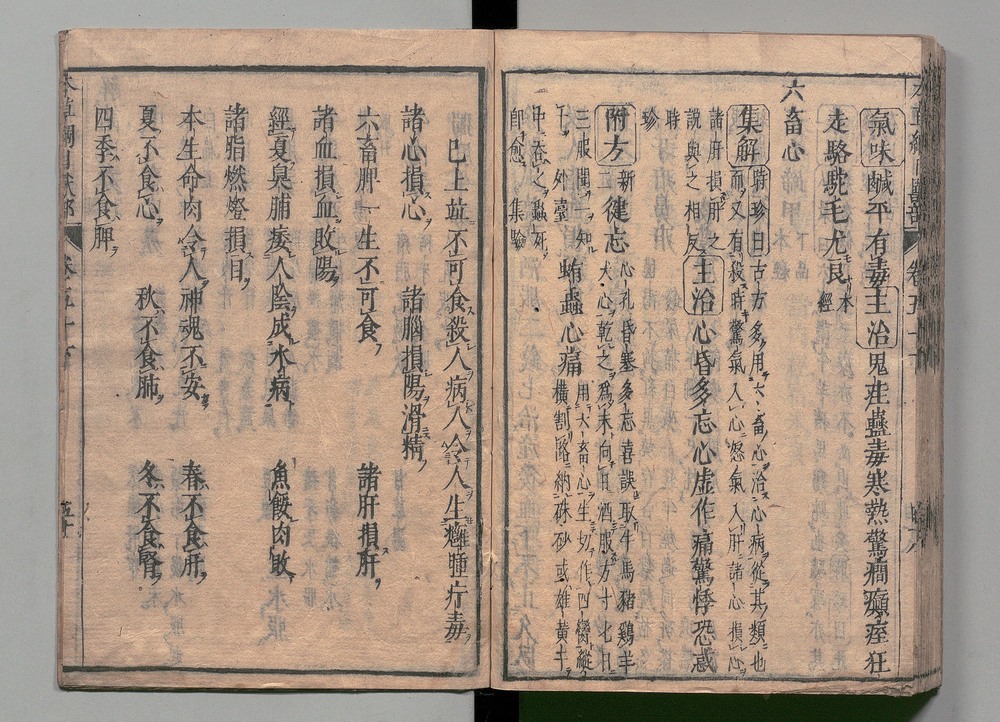 氣味鹹平有毒主治鬼疰蠱毒寒熱驚癇癲痓狂
走駱駝毛尤良本經
六畜心
集解時珍曰古方多用六畜心治心病從其類也
而又有殺時驚氣入心怒氣入肝諸心損心
諸肝損肝之
說與之相反主治心昏多忘心虛作痛驚悸恐惑
時珍
附方新二健忘心孔昏塞多忘喜誤取牛馬豬鷄羊
犬心乾之爲末向日酒服方寸匕日
三服聞一知
十外臺蛕蟲心痛用六畜心生切作四臠縱
橫割路納硃砂或雄黃于
中吞之蟲死
即愈集驗
已上並不可食殺人病人令人生癰腫疔毒
諸心損心 諸腦損陽滑精
六畜脾一生不可食 諸肝損肝
諸血損血敗陽
經夏臭脯痿人陰成水病 魚餒肉敗
諸脂燃燈損目
本生命肉令人神魂不安 春不食肝
夏不食心 秋不食肺 冬不食腎
四季不食脾